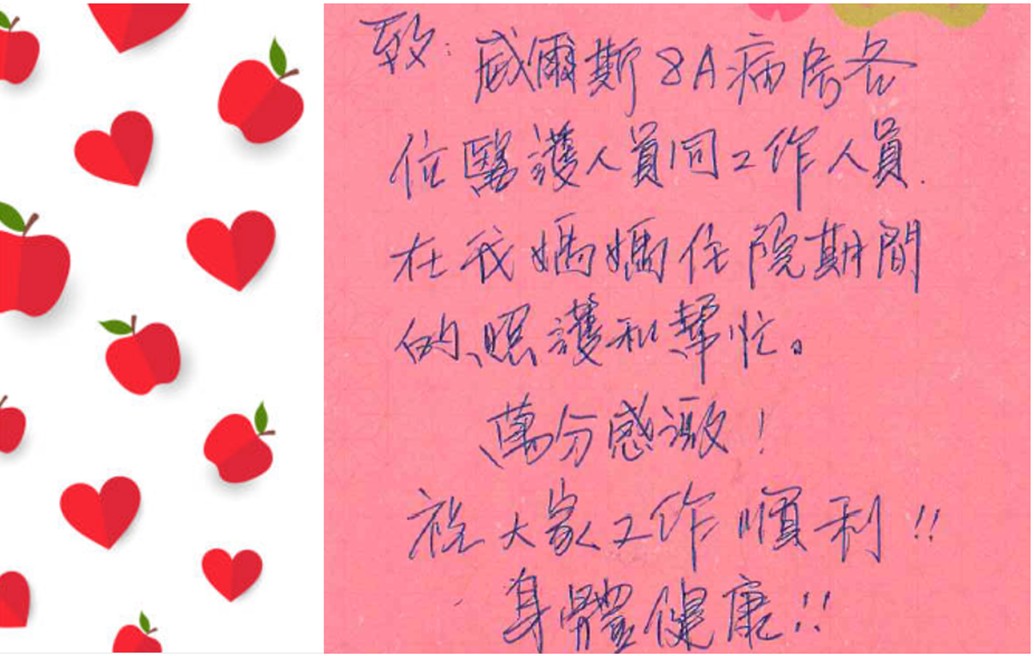 致：威爾斯 8A 病房各
位醫護人員同工作人員.
在我媽媽住院期間
的照護和幫忙。
萬分感激！
祝大家工作順利!!
身體健康!!